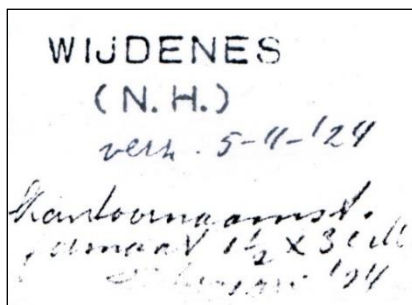 WIJDENES
(N.H.)
verz. 5-11-'24
Kantoornaamst.
formaat 1½ x 3 cM
'24